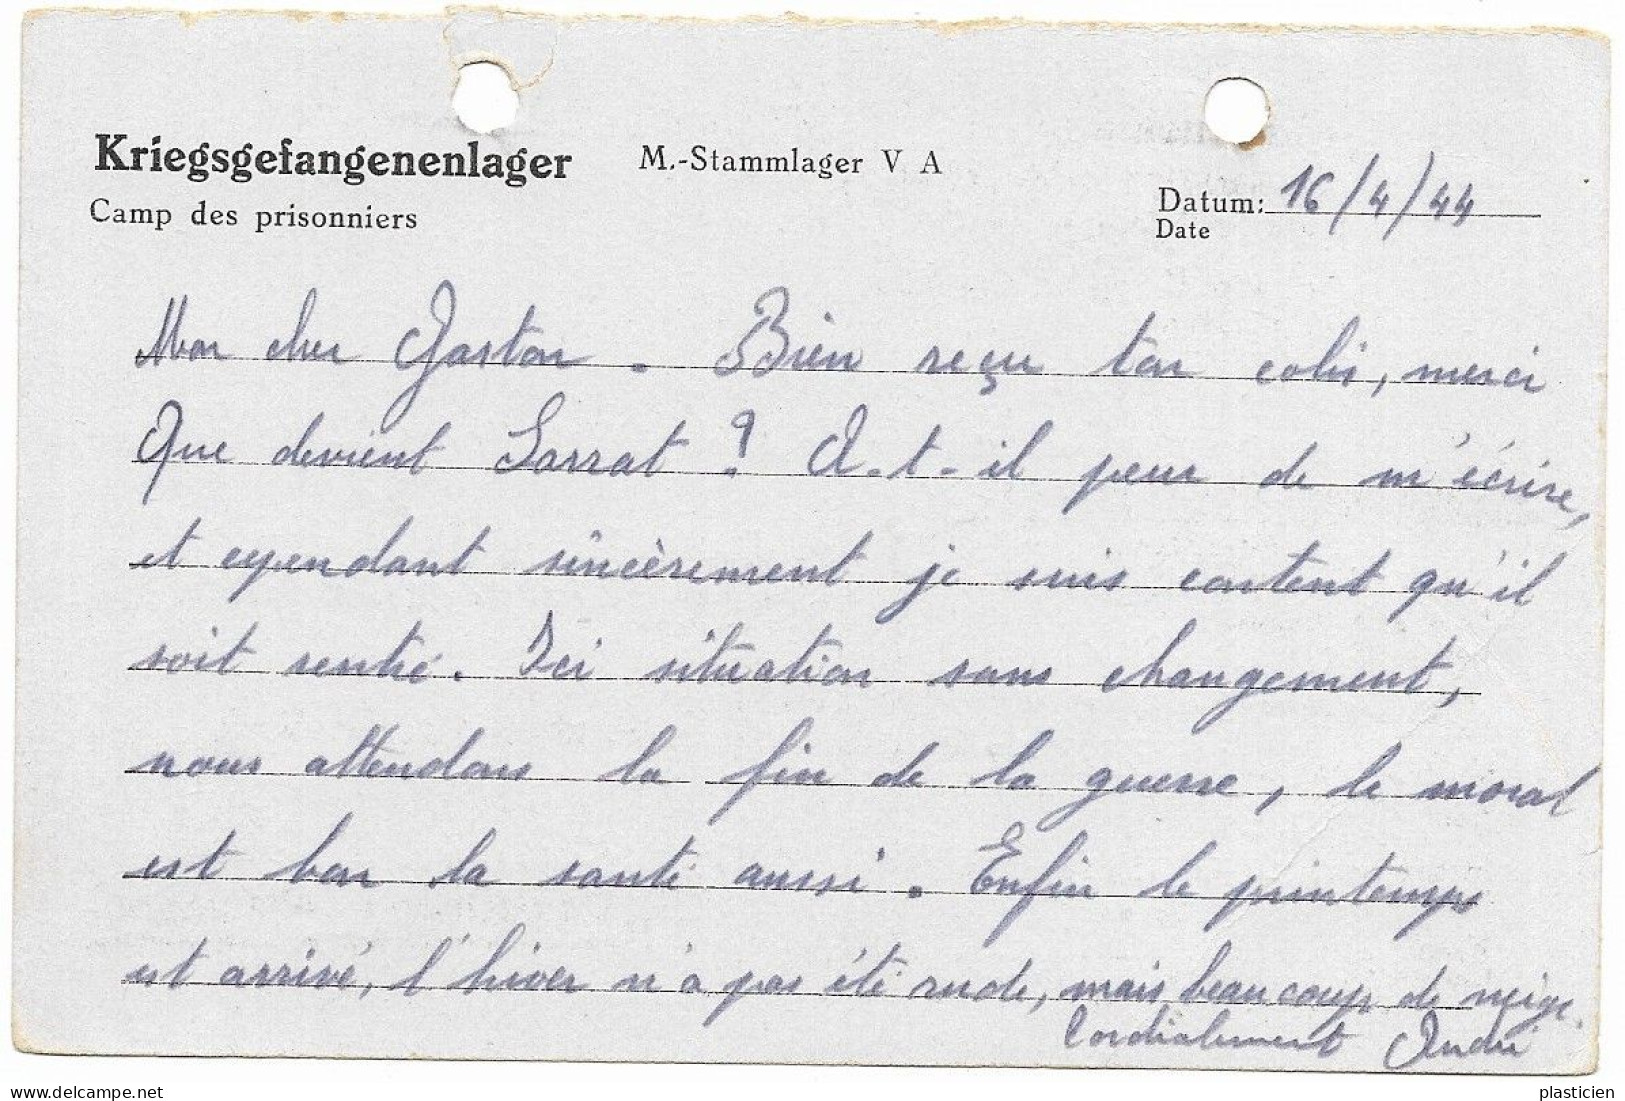 Kriegsgefangenenlager M.-Stammlager V A
Camp des prisonniers
Datum: 16/4/44
Date
Mon cher Gaston. Bien reçu ton colis, merci
Que devient Sarrat ? A-t-il peur de m'écrire,
et cependant sincèrement je suis content qu'il
soit rentré. Ici situation sans changement,
nous attendons la fin de la guerre, le moral
est bon la santé aussi. Enfin le printemps
est arrivé, l'hiver n'a pas été rude, mais beaucoup de neige.
Cordialement André
plasticien